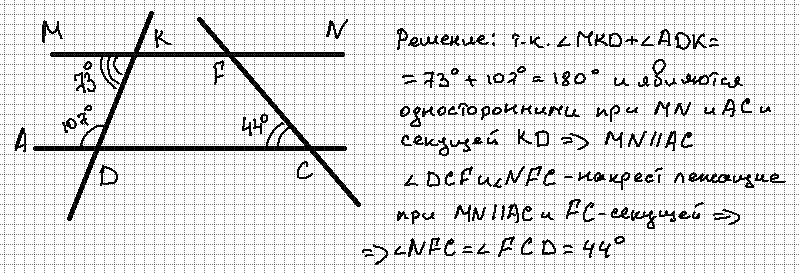 M K N
73° F
107° 44°
A
D C
Решение: т.к. ∠MKD+∠ADK=
=73°+107°=180° и являются
односторонними при MN и AC и
секущей KD => MN||AC
∠DCF и ∠NFC - накрест лежащие
при MN||AC и FC-секущей =>
=> ∠NFC=∠FCD=44°